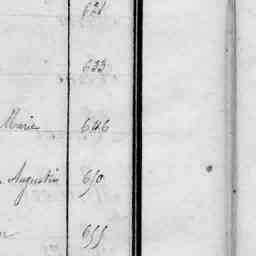 621
633
Marie 646
Augustin 650
655